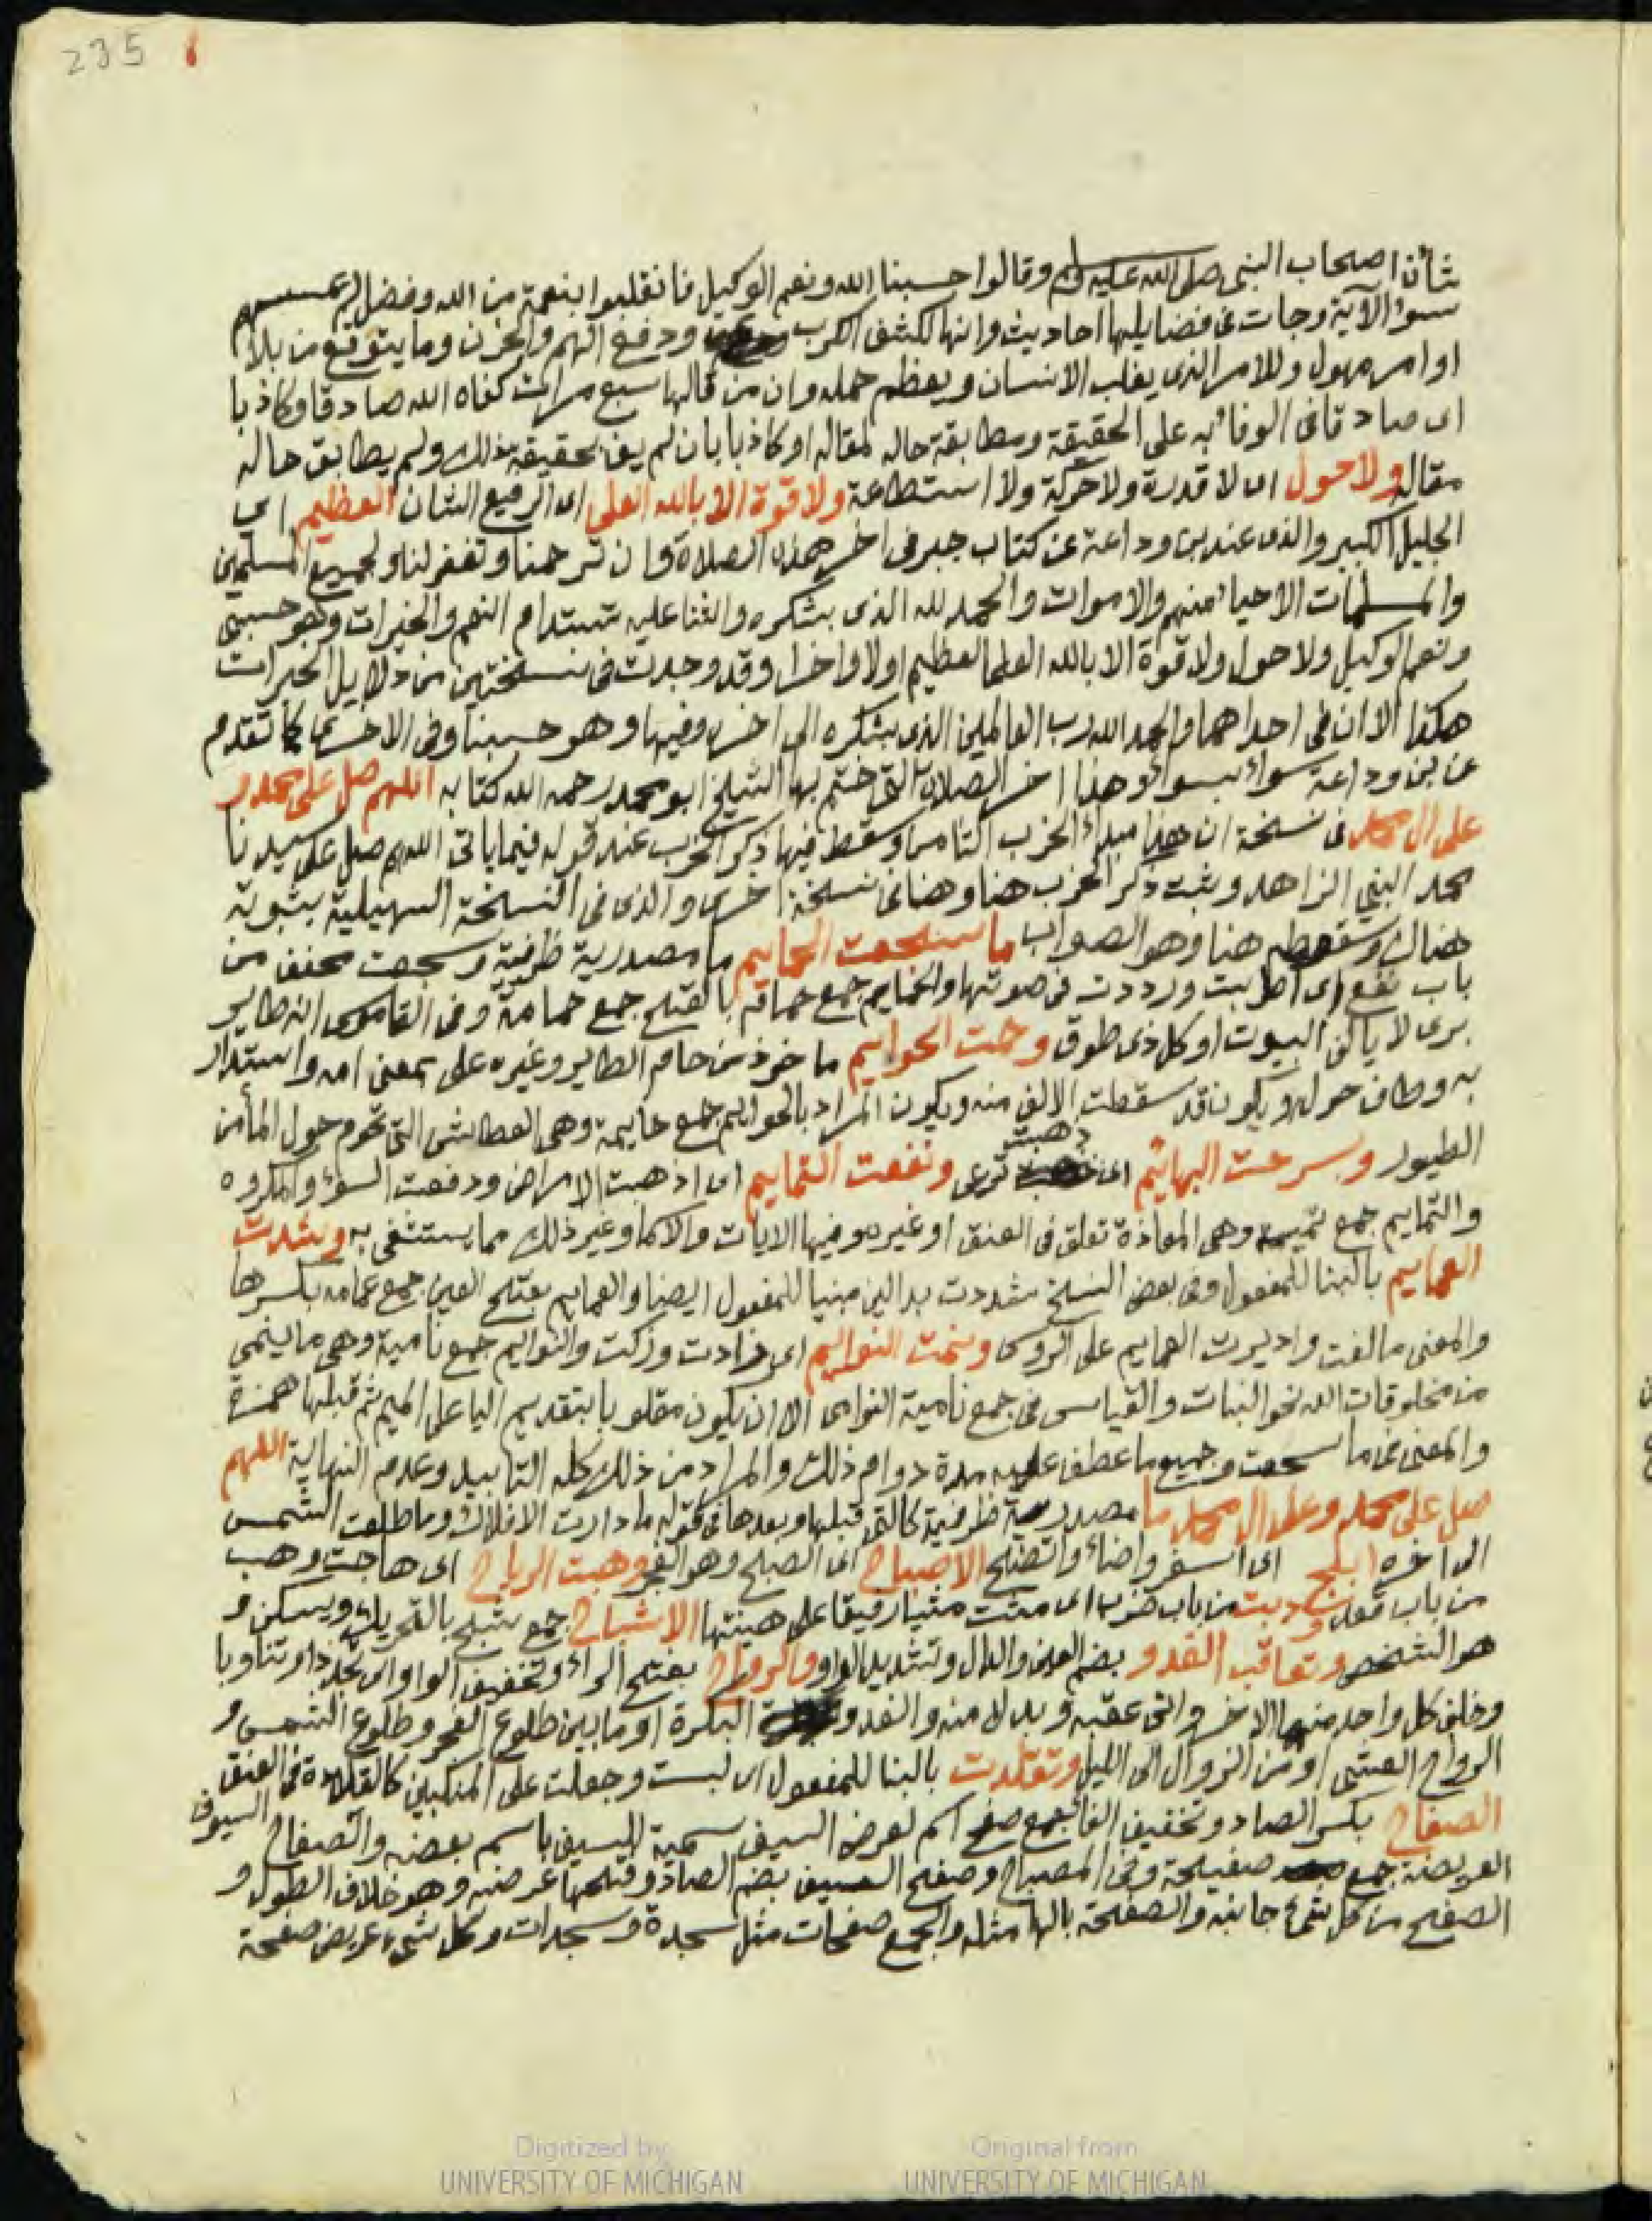 235
شأن اصحاب النبى صلى الله عليه وسلم وقالوا حسبنا الله ونعم الوكيل فانقلبوا بنعمة من الله وفضل لم يمسسهم
سوء الآية وجات فى فضايلها احاديث وانها لكشف الكرب ودفع الهم والحزن وما يتوقع من بلاء
او امر مهول وللامر الذى يغلب الانسان ويعظم حمله وان من قالها سبع مرات كفاه الله صادقا وكاذبا
اى صادقا فى الوفاء به على الحقيقة ومطابقة حاله لمقاله او كاذبا بان لم يف بحقيقة ذلك ولم يطابق حاله
مقاله ولا حول اى لا قدرة ولا حركة ولا استطاعة ولا قوة الا بالله العلى اى الرفيع الشان العظيم اى
الجليل الكبير والذى عند بن وداعة عن كتاب جبر فى اخر هذه الصلاة وان ترحمنا وتغفر لنا ولجميع المسلمين
والمسلمات الاحياء منهم والاموات والحمد لله الذى بشكره والثنا عليه تستدام النعم والخيرات وهو حسبى
ونعم الوكيل ولا حول ولا قوة الا بالله العلى العظيم اولا واخرا وقد وجدت فى نسختين من دلايل الخيرات
هكذا الا ان فى احداهما والحمد الله رب العالمين الذى بشكره الى اخره وفيها وهو حسبنا وفى الاخرى كما تقدم
عن بن وداعة سواء بسواء وهذا اخر الصلاة التى ختم بها الشيخ ابو محمد رحمه الله كتابه اللهم صل على محمد و
على ال محمد فى نسخة ان هذا مبداء الحزب الثامن وسقط فيها ذكر الحزب عند قوله فيما ياتى اللهم صل على سيدنا
محمد النبي الزاهد وثبت ذكر الحزب هنا وهنا فى نسخة اخرى والذى فى النسخة السهيلية بثبوته
هناك وسقوطه هنا وهو الصواب ما سجعت الحمايم ما مصدرية ظرفية وسجعت مخفف من
باب نفع اى اطربت ورددت فى صوتها والحمايم جمع حمامة بالفتح جمع حمامة وفى القاموس انه طاير
برى لا يالف البيوت او كل ذى طوق وحمت الحوايم ماخوذ من حام الطاير وغيره على بمعنى امه واستدار
به وطاف حوله ويكون قد سقطت الالف منه ويكون المراد بالحوايم جمع حايمة وهى العطاش التى تحوم حول الماء من
الطيور وسرحت البهائم اى ذهبت ترعى ونفعت التمايم اى اذهبت الامراض ودفعت السوء والمكروه
والتمايم جمع تميمة وهى المعاذة تعلق فى العنق او غيره وفيها الايات والاسما وغير ذلك مما يستشفى به وشدت
العمايم بالبنا للمفعول وفى بعض النسخ شددت بدالين مبنيا للمفعول ايضا والعمايم بفتح العين جمع عمامه بكسرها
والمعنى ما لفت واديرت العمايم على الروس ونمت النوايم اى زادت وزكت والنوايم جمع نامية وهى ما ينمى
من مخلوقات الله نحو النبات والقياس فى جمع نامية النوامى الا ان يكون مقلوبا بتقديم اليا على الميم ثم قبلها همزة
والمعنى فى ما سجعت وجميع ما عطف عليه مدة دوام ذلك والمراد من ذلك كله التابيد وعدم النهاية اللهم
صل على محمد وعلى ال محمد ما مصدرية ظرفية كالتى قبلها وبعدها فى قوله ما دارت الافلاك وما طلعت الشمس
الى اخره ابلج اى اسفر واضاء واتضح الاصباح اى الصبح وهو الفجر وهبت الرياح اى هاجت وهب
من باب قعد ودبت من باب ضرب اى مشت مشيا رفيقا على هينتها الاشباح جمع شبح بالتحريك ويسكن و
هو الشخص وتعاقب الغدو بضم الغين والدال وتشديد الواو والرواح بفتح الراء وتخفيف الواو اى تجدد او تناوبا
وخلف كل واحد منهما الاخر واتى عقبه وبدلا منه والغدو البكرة او ما بين طلوع الفجر وطلوع الشمس و
الرواح العشى او من الزوال الى الليل وتقلدت بالبنا للمفعول اى لبست وجعلت على المنكبين كالقلادة فى العنق
الصفاح بكسر الصاد وتخفيف الفاء جمع صفح اسم لعرض السيف سمية للسيف باسم بعضه والصفاح السيوف
العريضة جمع صفيحة وفى المصباح وصفح السيف بضم الصاد وفتحها عرضه وهو خلاف الطول و
الصفح من كل شىء جانبه والصفحة بالها مثله والجمع صفحات مثل سجدة وسجدات وكل شىء عريض صفحة
Digitized by
UNIVERSITY OF MICHIGAN
Original from
UNIVERSITY OF MICHIGAN